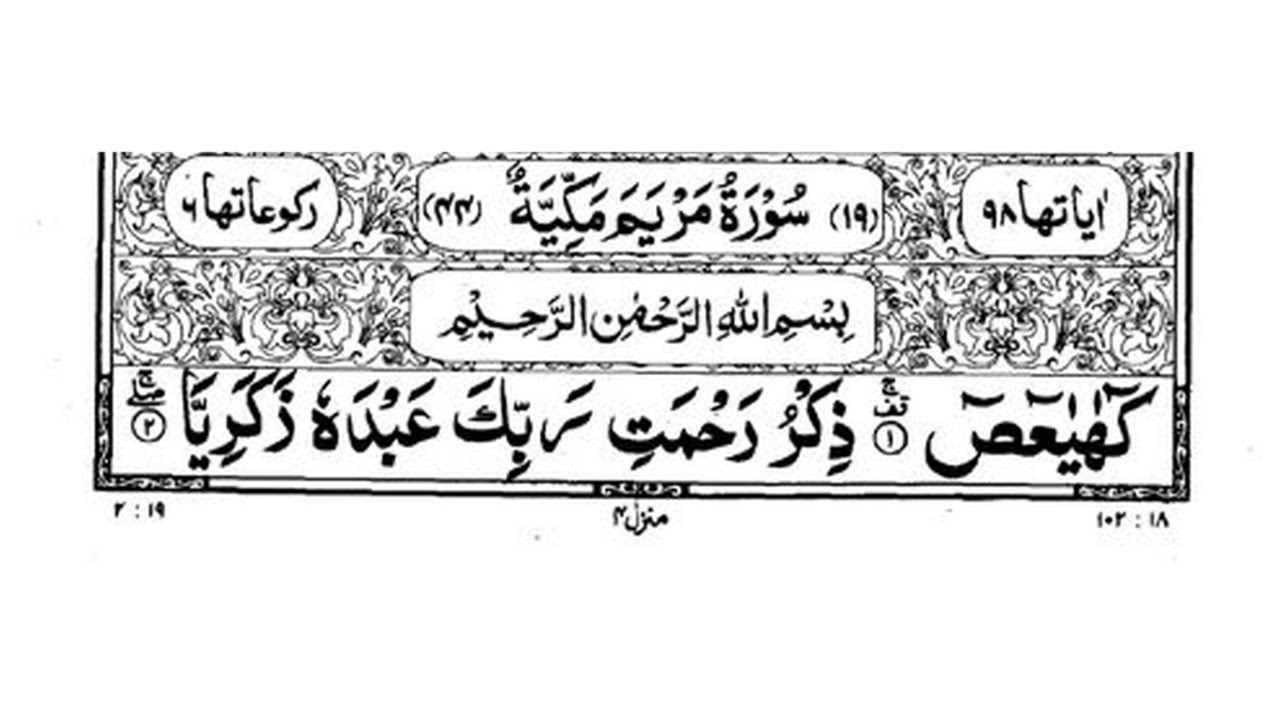 اٰیاتها ۹۸ (۱۹) سُوْرَةُ مَرْیَمَ مَكِّیَّةٌ (۴۴) ركوعاتها ۶
بِسْمِ اللّٰهِ الرَّحْمٰنِ الرَّحِیْمِ
كٓهٰیٰعٓصٓ ۚ قف ۱ ذِكْرُ رَحْمَتِ رَبِّكَ عَبْدَهٗ زَكَرِیَّا ۚ صلے ۲
۱۰۲ : ۱۸ منزل ۴ ۲ : ۱۹